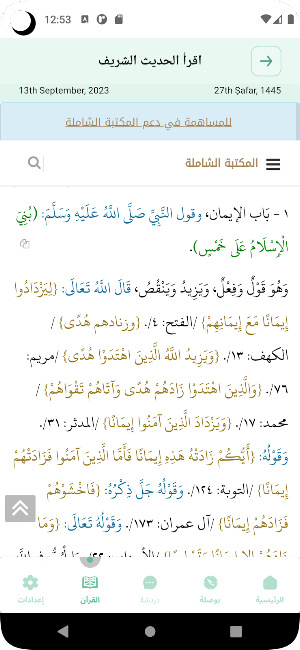 12:53
اقرأ الحديث الشريف
13th September, 2023
27th Safar, 1445
للمساهمة في دعم المكتبة الشاملة
المكتبة الشاملة
١ - بَاب الإيمان، وقول النَّبِيِّ صَلَّى اللَّهُ عَلَيْهِ وَسَلَّمَ: (بُنِيَ
الْإِسْلَامُ عَلَى خَمْسٍ).
وَهُوَ قَوْلٌ وَفِعْلٌ، وَيَزِيدُ وَيَنْقُصُ، قَالَ اللَّهُ تَعَالَى: {لِيَزْدَادُوا
إِيمَانًا مَعَ إِيمَانِهِمْ} /الفتح: ٤/. {وزدناهم هُدًى} /
الكهف: ١٣/. {وَيَزِيدُ اللَّهُ الَّذِينَ اهْتَدَوْا هُدًى} /مريم:
٧٦/. {وَالَّذِينَ اهْتَدَوْا زَادَهُمْ هُدًى وَآتَاهُمْ تَقْوَاهُمْ} /
محمد: ١٧/. {وَيَزْدَادَ الَّذِينَ آمَنُوا إِيمَانًا} /المدثر: ٣١/.
وَقَوْلُهُ: {أَيُّكُمْ زَادَتْهُ هَذِهِ إِيمَانًا فَأَمَّا الَّذِينَ آمَنُوا فَزَادَتْهُمْ
إِيمَانًا} /التوبة: ١٢٤/. وَقَوْلُهُ جَلَّ ذِكْرُهُ: {فَاخْشَوْهُمْ
فَزَادَهُمْ إِيمَانًا} /آل عمران: ١٧٣/. وَقَوْلُهُ تَعَالَى: {وَمَا
الرئيسية
بوصلة
دردشة
القرآن
إعدادات